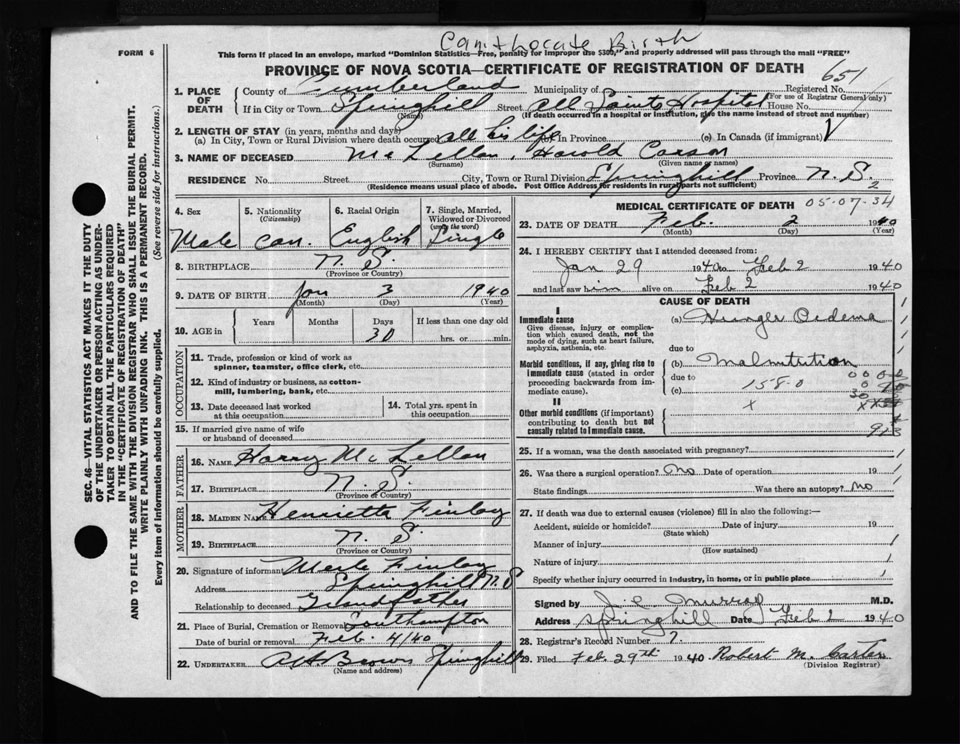 Can't locate Birth
FORM 6
This form if placed in an envelope, marked "Dominion Statistics—Free, penalty for improper use $300," and properly addressed will pass through the mail "FREE"
PROVINCE OF NOVA SCOTIA—CERTIFICATE OF REGISTRATION OF DEATH
651
1. PLACE OF DEATH
County of Cumberland Municipality of Registered No.
(For use of Registrar General only)
If in City or Town Springhill Street All Saints Hospital House No.
(Name) (If death occurred in a hospital or institution, give the name instead of street and number)
2. LENGTH OF STAY (in years, months and days)
(a) In City, Town or Rural Division where death occurred all his life In Province (c) In Canada (if immigrant)
3. NAME OF DECEASED McLellan, Harold Carson
(Surname) (Given name or names)
RESIDENCE No. Street City, Town or Rural Division Springhill Province N. S.
(Residence means usual place of abode. Post Office Address for residents in rural parts not sufficient)
2
4. Sex
Male
5. Nationality
(Citizenship)
Can.
6. Racial Origin
English
7. Single, Married, Widowed or Divorced
(write the word)
Single
8. BIRTHPLACE N. S.
(Province or Country)
9. DATE OF BIRTH Jan 3 1940
(Month) (Day) (Year)
10. AGE in Years Months Days If less than one day old
30 hrs. or min.
OCCUPATION
11. Trade, profession or kind of work as spinner, teamster, office clerk, etc.
12. Kind of industry or business, as cotton-mill, lumbering, bank, etc.
13. Date deceased last worked at this occupation
14. Total yrs. spent in this occupation
15. If married give name of wife or husband of deceased
FATHER
16. NAME Harry McLellan
17. BIRTHPLACE N. S.
(Province or Country)
MOTHER
18. MAIDEN NAME Henrietta Finlay
19. BIRTHPLACE N. S.
(Province or Country)
20. Signature of informant Merle Finlay
Address Springhill N. S
Relationship to deceased Grandfather
21. Place of Burial, Cremation or Removal Southampton
Date of burial or removal Feb. 4/40
22. UNDERTAKER Brown Springhill
(Name and address)
MEDICAL CERTIFICATE OF DEATH 05-07-34
23. DATE OF DEATH Feb. 2 1940
(Month) (Day) (Year)
24. I HEREBY CERTIFY that I attended deceased from:
Jan 29 1940 to Feb 2 1940
and last saw him alive on Feb 2 1940
CAUSE OF DEATH
I
Immediate cause (a) Hunger Oedema
Give disease, injury or complication which caused death, not the mode of dying, such as heart failure, asphyxia, asthenia, etc.
due to
Morbid conditions, if any, giving rise to immediate cause (stated in order proceeding backwards from immediate cause).
(b) Malnutrition
due to
158-0
(c)
II
Other morbid conditions (if important) contributing to death but not causally related to immediate cause.
x
25. If a woman, was the death associated with pregnancy?
26. Was there a surgical operation? No Date of operation 19
State findings Was there an autopsy? No
27. If death was due to external causes (violence) fill in also the following:—
Accident, suicide or homicide? Date of injury 19
(State which)
Manner of injury
(How sustained)
Nature of injury
Specify whether injury occurred in industry, in home, or in public place
Signed by Murray M.D.
Address Springhill Date Feb 2 1940
28. Registrar's Record Number 7.
29. Filed Feb. 29th 1940 Robert M. Carter
(Division Registrar)
SEC. 46—VITAL STATISTICS ACT MAKES IT THE DUTY
OF THE UNDERTAKER OR PERSON ACTING AS UNDERTAKER TO OBTAIN ALL THE PARTICULARS REQUIRED
IN THE "CERTIFICATE OF REGISTRATION OF DEATH"
AND TO FILE THE SAME WITH THE DIVISION REGISTRAR WHO SHALL ISSUE THE BURIAL PERMIT.
WRITE PLAINLY WITH UNFADING INK. THIS IS A PERMANENT RECORD.
Every item of information should be carefully supplied. (See reverse side for instructions.)